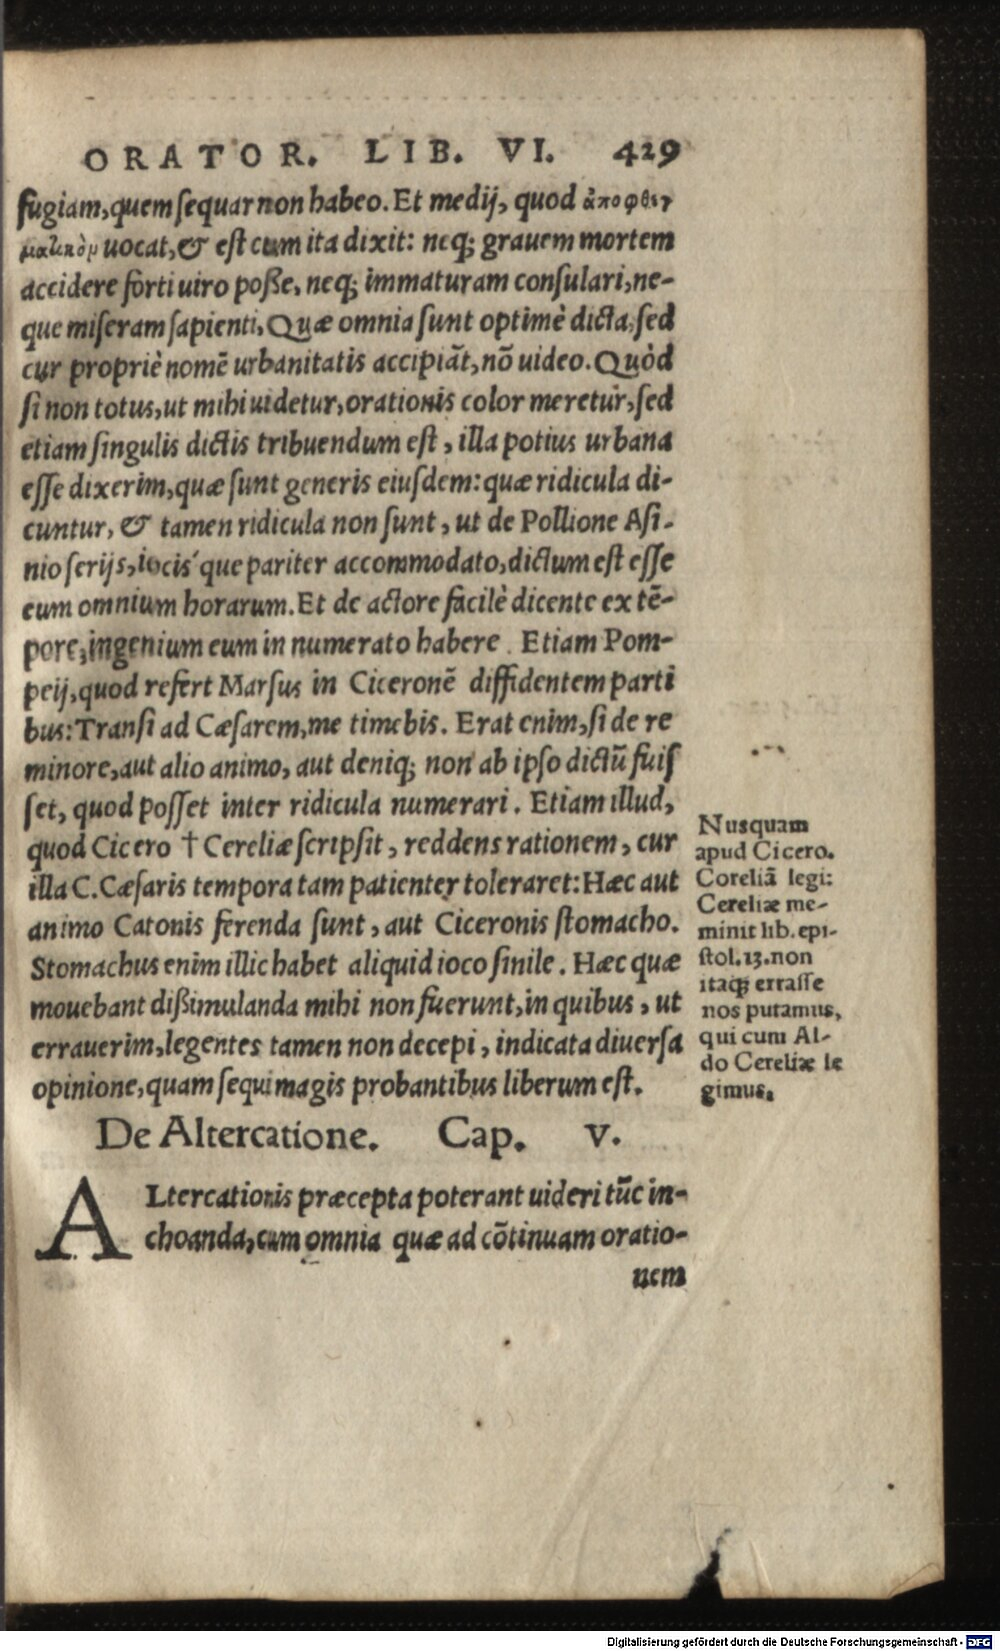 ORATOR. LIB. VI. 429
fugiam, quem sequar non habeo. Et medij, quod ἀποφθεγ
ματικὸν uocat, & est cum ita dixit: neq; grauem mortem
accidere forti uiro posse, neq; immaturam consulari, ne-
que miseram sapienti. Quæ omnia sunt optimè dicta, sed
cur propriè nomē urbanitatis accipiāt, nō uideo. Quòd
si non totus, ut mihi uidetur, orationis color meretur, sed
etiam singulis dictis tribuendum est, illa potius urbana
esse dixerim, quæ sunt generis eiusdem: quæ ridicula di-
cuntur, & tamen ridicula non sunt, ut de Pollione Asi-
nio serijs, iocis´que pariter accommodato, dictum est esse
eum omnium horarum. Et de actore facilè dicente ex tē-
pore, ingenium eum in numerato habere. Etiam Pom-
peij, quod refert Marsus in Ciceronē diffidentem parti
bus: Transi ad Cæsarem, me timebis. Erat enim, si de re
minore, aut alio animo, aut deniq; non ab ipso dictū fuis
set, quod posset inter ridicula numerari. Etiam illud,
quod Cicero † Cereliæ scripsit, reddens rationem, cur
illa C. Cæsaris tempora tam patienter toleraret: Hæc aut
animo Catonis ferenda sunt, aut Ciceronis stomacho.
Stomachus enim illic habet aliquid ioco simile. Hæc quæ
mouebant dißimulanda mihi non fuerunt, in quibus, ut
errauerim, legentes tamen non decepi, indicata diuersa
opinione, quam sequi magis probantibus liberum est.
Nusquam
apud Cicero.
Coreliā legi:
Cereliæ me-
minit lib. epi-
stol. 13. non
itaq; errasse
nos putamus,
qui cum Al-
do Cereliæ le
gimus.
De Altercatione. Cap. V.
ALtercationis præcepta poterant uideri tūc in-
choanda, cum omnia quæ ad cōtinuam oratio-
nem
Digitalisierung gefördert durch die Deutsche Forschungsgemeinschaft - DFG